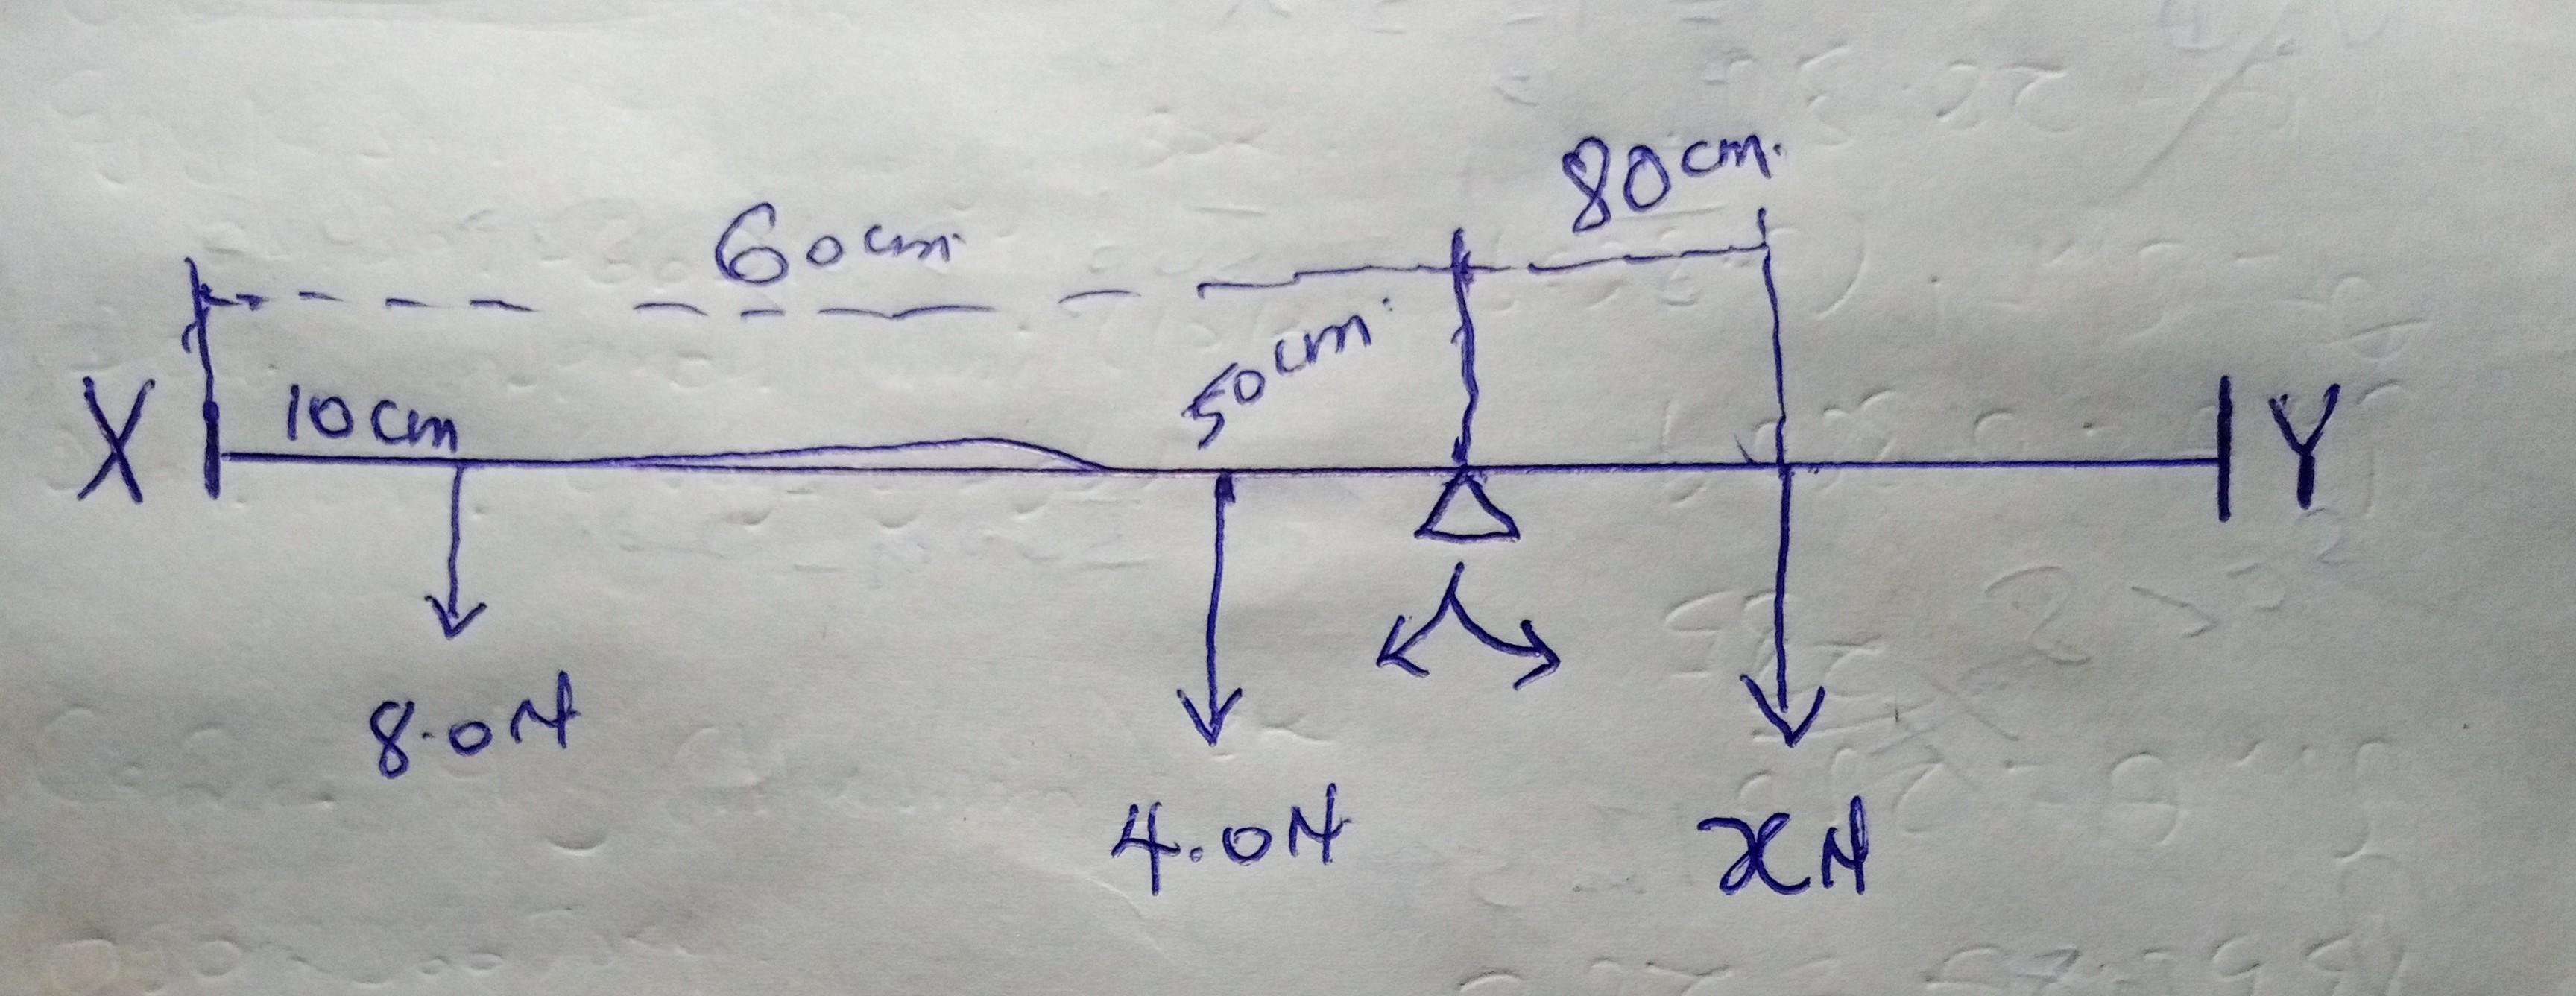 80cm.
60cm.
50cm.
10cm
X
Y
8.0N
4.0N
xN